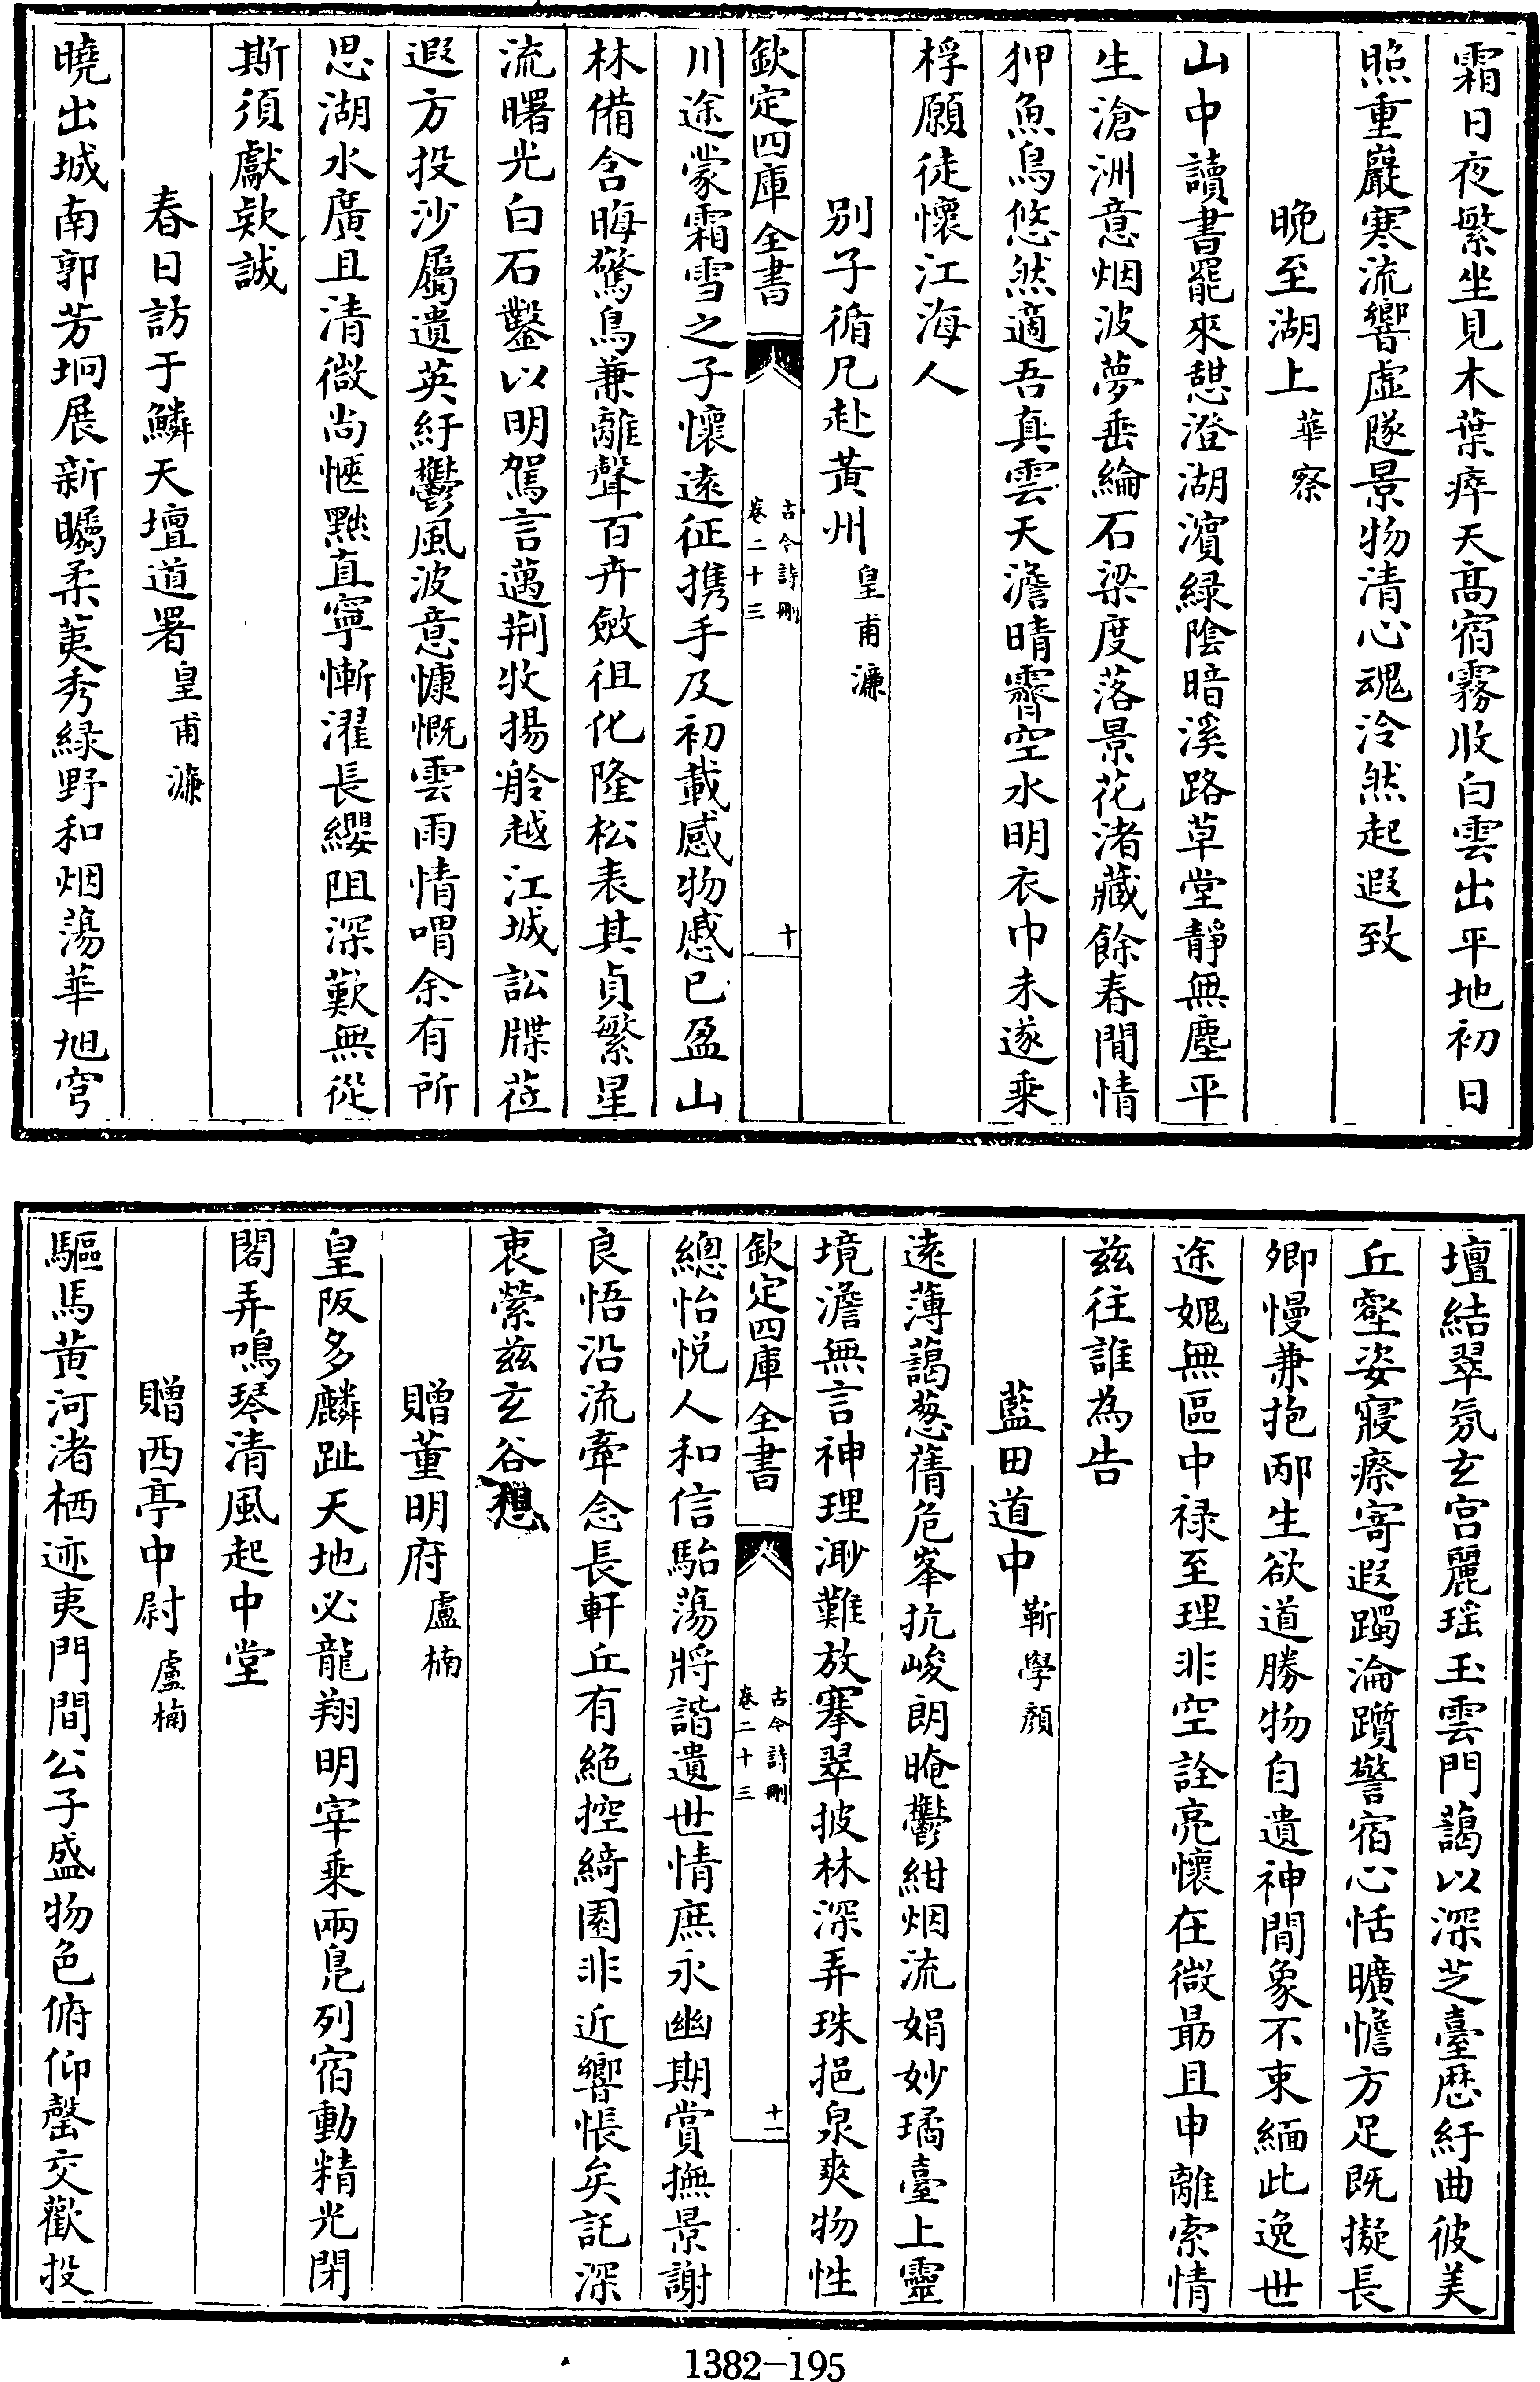 霜日夜繁坐見木葉瘁天高宿霧收白雲出平地初日
照重巖寒流響虛隧景物清心魂泠然起遐致
晚至湖上 華察
山中讀書罷來憇澄湖濱緑陰暗溪路草堂靜無塵平
生滄洲意烟波夢垂綸石梁度落景花渚藏餘春閒情
狎魚鳥悠然適吾真雲天澹晴霽空水明衣巾未遂乘
桴願徒懷江海人
别子循兄赴黄州 皇甫濂
欽定四庫全書
古今詩刪
卷二十三
十
川途蒙霜雪之子懷遠征携手及初載感物慼已盈山
林備含晦驚鳥兼離聲百卉斂徂化隆松表其貞繁星
流曙光白石鑿以明駕言邁荆牧揚舲越江城訟牒莅
遐方投沙屬遺英紆鬱風波意慷慨雲雨情喟余有所
思湖水廣且清微尚愜黙直寧慚濯長纓阻深歎無從
斯須獻欵誠
春日訪于鱗天壇道署 皇甫濂
曉出城南郭芳坰展新矚柔荑秀緑野和烟蕩華旭穹
壇結翠氛玄宫麗瑶玉雲門藹以深芝臺歴紆曲彼美
丘壑姿寢瘵寄遐躅淪躓警宿心恬曠憺方足既擬長
卿慢兼抱邴生欲道勝物自遺神閒象不束緬此逸世
途媿無區中禄至理非空詮亮懷在微朂且申離索情
兹往誰為告
藍田道中 靳學顔
遠薄藹葱蒨危峯抗峻朗晻鬱紺烟流娟妙璚臺上靈
境澹無言神理渺難放搴翠披林深弄珠挹泉爽物性
欽定四庫全書
古今詩刪
卷二十三
十一
總怡悦人和信駘蕩將諧遺世情庶永幽期賞撫景謝
良悟沿流牽念長軒丘有絶控綺園非近響悵矣託深
衷縈兹玄谷想
贈董明府 盧楠
皇阪多麟趾天地必龍翔明宰乘兩鳬列宿動精光閉
閣弄鳴琴清風起中堂
贈西亭中尉 盧楠
驅馬黄河渚栖迹夷門間公子盛物色俯仰罄交歡投
1382-195